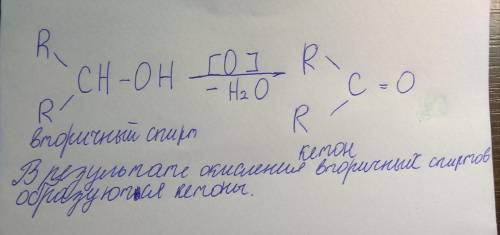 R R
CH-OH [O] C=O
R -H₂O R
вторичный спирт кетон
В результате окисления вторичных спиртов
образуются кетоны.